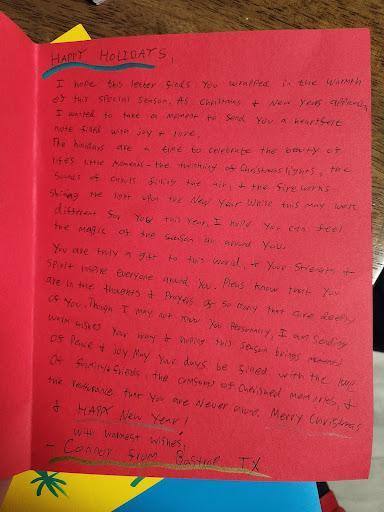 HAPPY HOLIDAYS,
I hope this letter finds you wrapped in the warmth
of this special season. As Christmas & New Years approaches,
I wanted to take a moment to send you a heartfelt
note filled with joy & love.
The holidays are a time to celebrate the beauty of
life's little moments - the twinkling of Christmas lights, the
sound of carols filling the air, & the fireworks
shining the light upon the New Year. While this may look
different for you this year, I hope you can feel
the magic of the season all around you.
You are truly a gift to this world, & your strength &
spirit inspire everyone around you. Please know that you
are in the thoughts & prayers of so many that care deeply
of you. Though I may not know you personally, I am sending
warm wishes your way & hoping this season brings moments
of peace & joy. May your days be filled with the
of family & friends, the comforts of cherished memories, &
the reassurance that you are never alone. Merry Christmas
& HAPPY New Year!
with warmest wishes,
- Connor from Bastrop TX